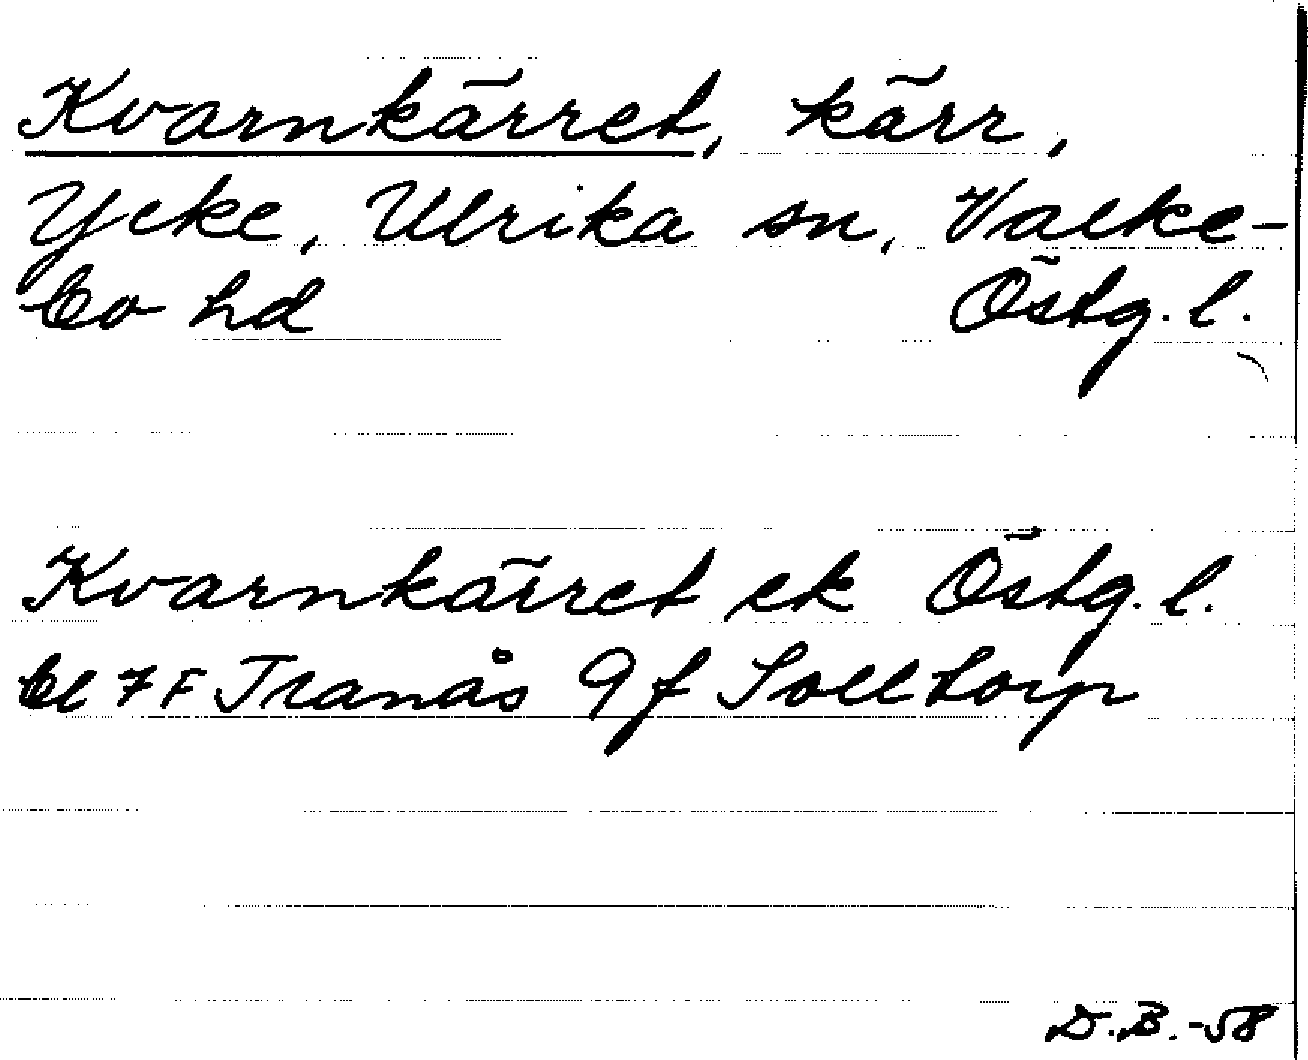 Kvarnkärret, kärr,
Ycke, Ulrika sn, Valke-
bo hd Östg. l.
Kvarnkärret ek Östg. l.
bl 7 F Tranås 9 f Solltorp
D.B. -58